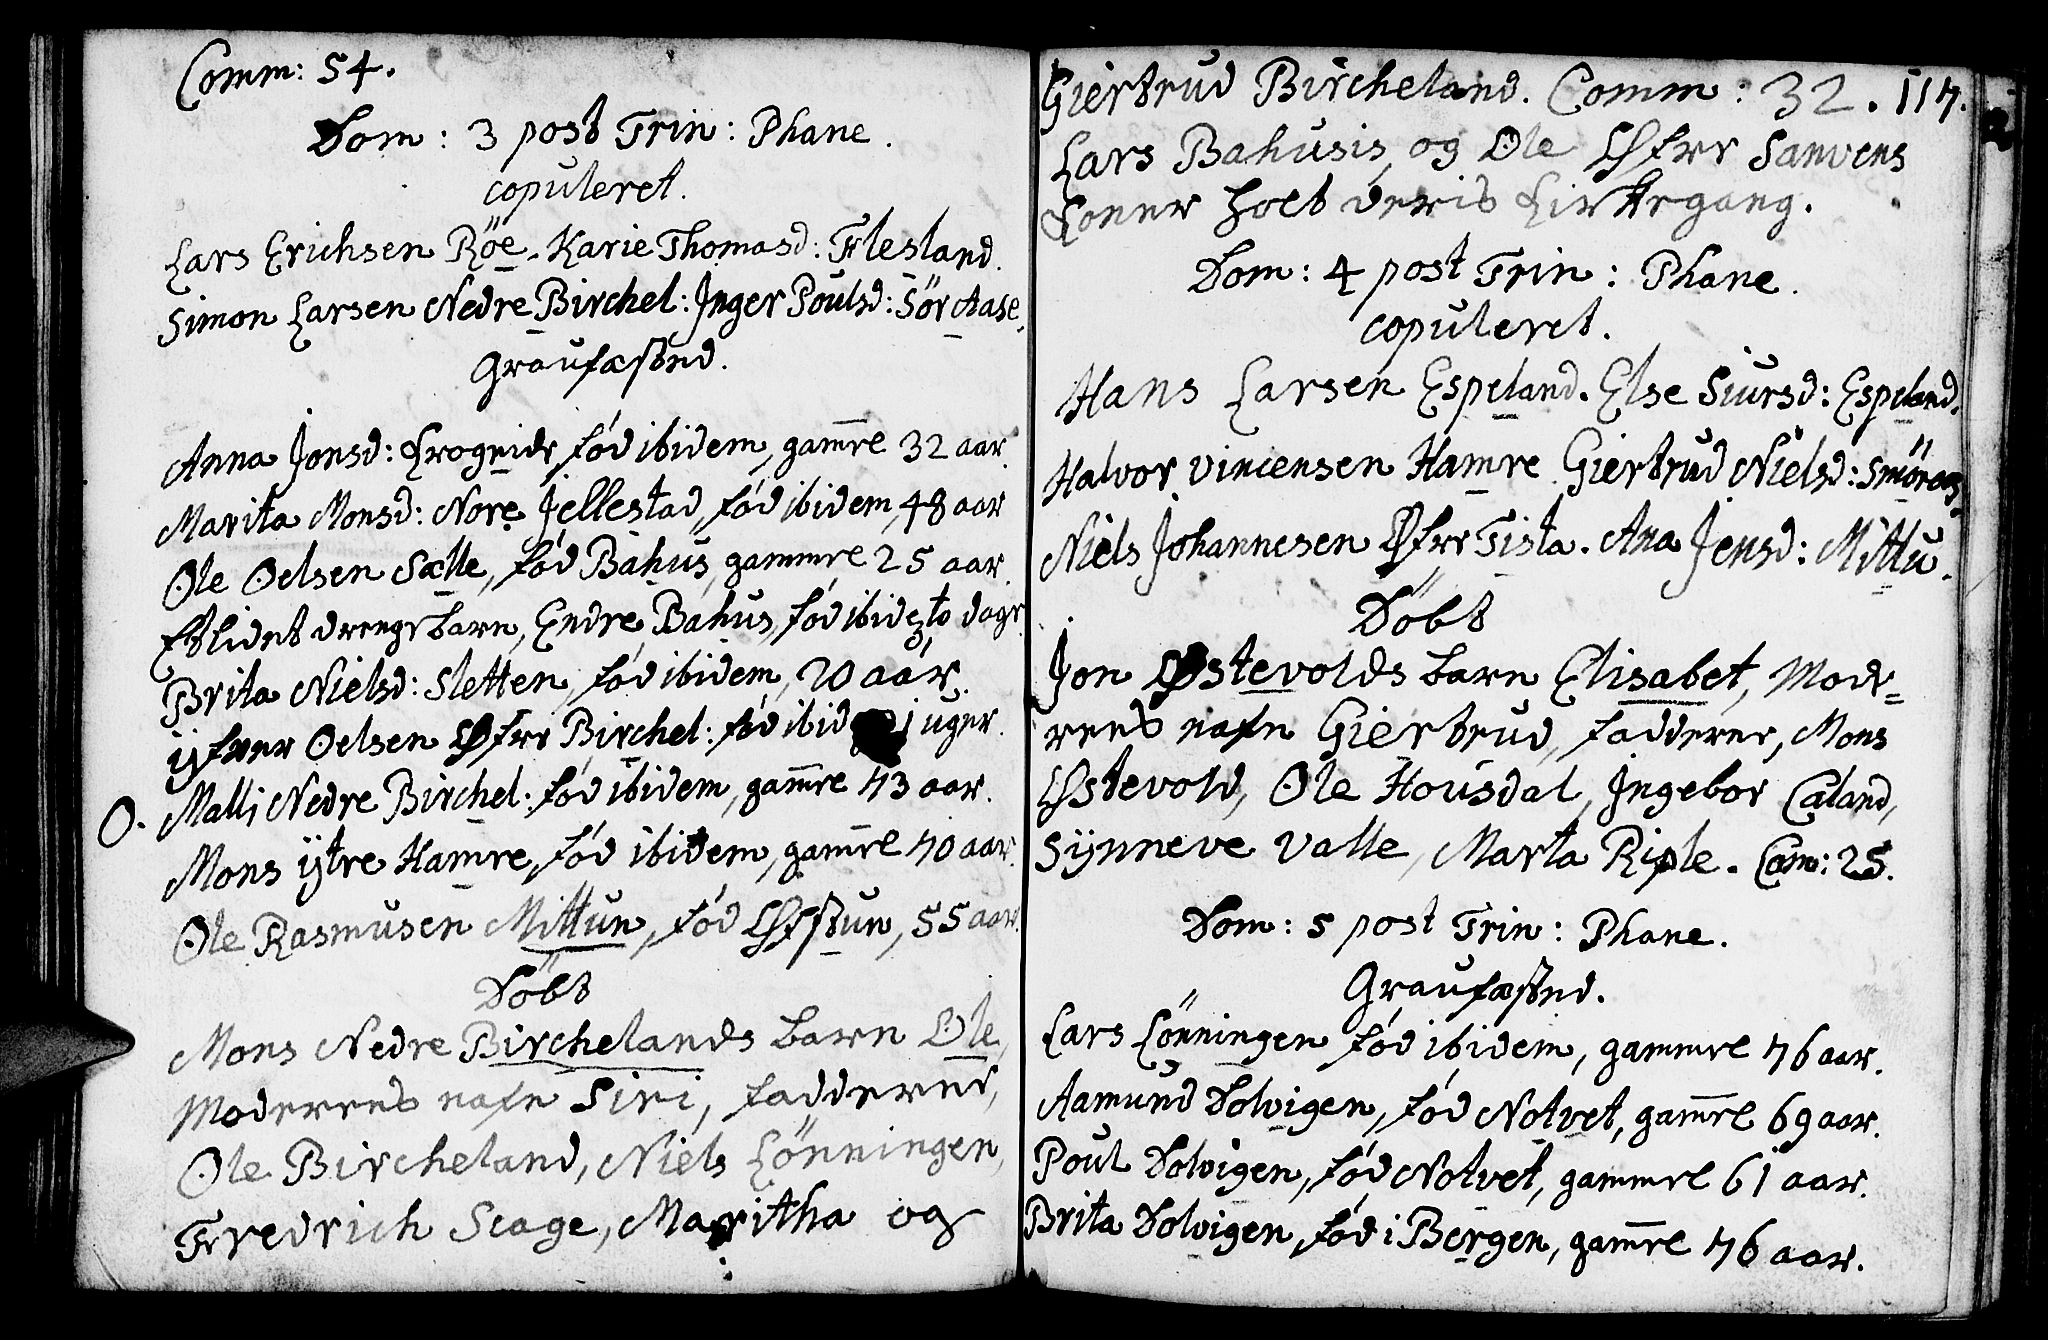 Comm: 54.
Dom: 3 post Trin: Phane.
copuleret.
Lars Erichsen Röe. Karie Thomasd: Flesland.
Simon Larsen Nedre Birchel: Inger Poulsd: Sör Aase.
Graufæstned.
Anna Jonsd: Krogeide, fód ibidem, gam̄el 32 aar.
Marita Monsd: Nore Jellestad, fód ibidem, 48 aar
Ole Oelsen Sælle, fód Bahus, gammel 25 aar.
Et lidet drengebarn, Endre Bahus, fód ibid, dage.
Brita Nielsd: Sletten, fód ibidem, 20 aar.
Oelsen Øfre Birchel: fód ibid 1 uger.
O. Malli Nedre Birchel: fód ibidem, gam̄el 73 aar.
Mons ÿtre Hamre, fód ibidem, gam̄el 70 aar.
Ole Rasmusen Mittun, fód Øfstun, 55 aar.
Döbt
Mons Nedre Birchelands barn Ole,
Moderens nafn Siri, fadderne,
Ole Bircheland, Niels Lönningen,
Fredrich Scage, Maritha og
Giertrud Bircheland. Comm: 32. 117.
Lars Bahusis, og Ole Øfre Sanvens
Koner holt deris Kirkegang.
Dom: 4 post Trin: Phane.
copuleret.
Hans Larsen Espeland. Else Siursd: Espeland.
Halvor Vincensen Hamre. Giertrud Nielsd: Smöraas.
Niels Johannesen Øfre Tista. Ana Jensd: Mittu.
Döbt
Jon Østevolds barn Elisabet, Mode=
rens nafn Giertrud, fadderne, Mons
Østevold, Ole Housdal, Ingebor Caland,
Sÿnneve Valle, Marta Riple. Com: 25.
Dom: 5 post Trin: Phane.
Graufæstned.
Lars Lönningen fód ibidem, gammel 76 aar.
Aamund Dolvigen, fód Notvet, gam̄el 69 aar.
Poul Dolvigen, fód Notvet, gammel 61 aar.
Brita Dolvigen, fód i Bergen, gam̄el 76 aar.